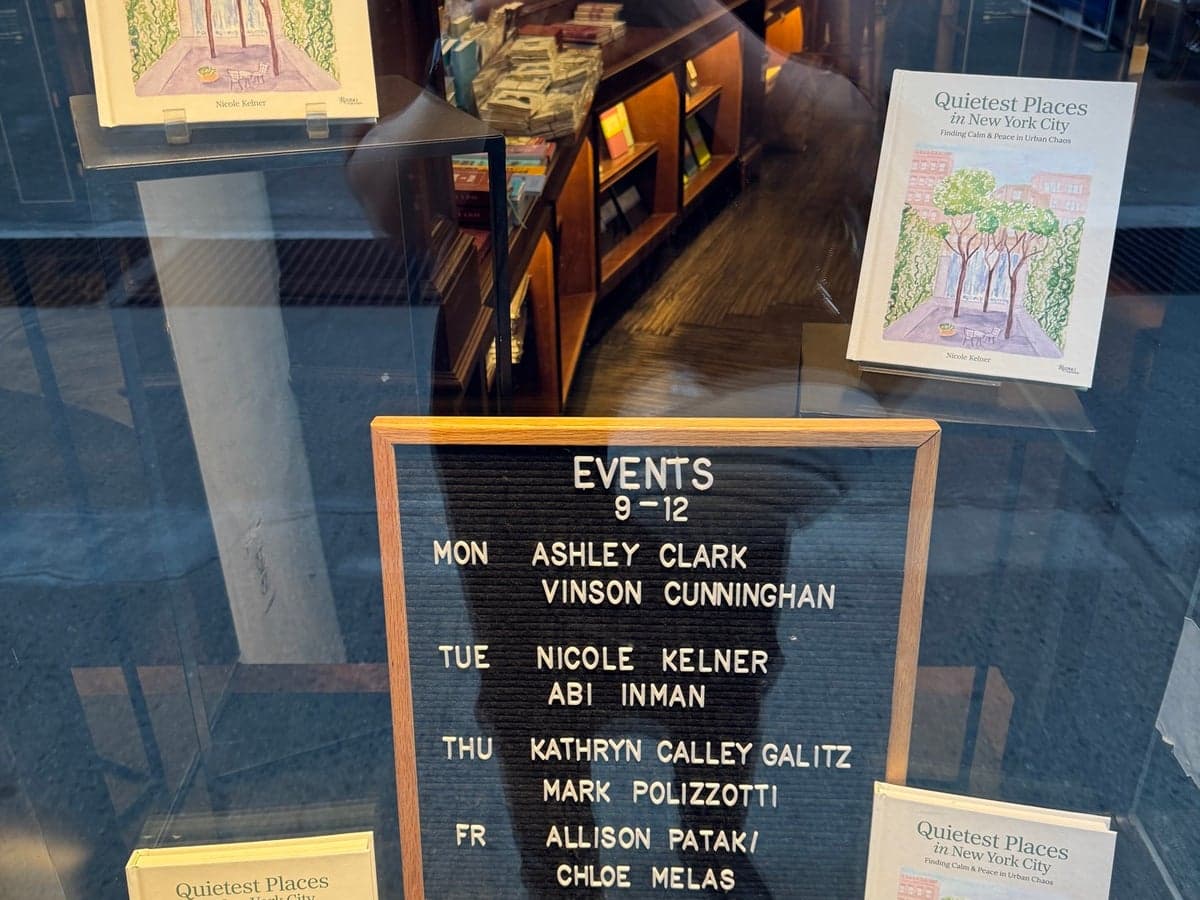 Nicole Kelner
Quietest Places
in New York City
Finding Calm & Peace in Urban Chaos
Nicole Kelner
EVENTS
9-12
MON ASHLEY CLARK
VINSON CUNNINGHAN
TUE NICOLE KELNER
ABI INMAN
THU KATHRYN CALLEY GALITZ
MARK POLIZZOTTI
FR ALLISON PATAK/
CHLOE MELAS
Quietest Places
Quietest Places
in New York City
Finding Calm & Peace in Urban Chaos